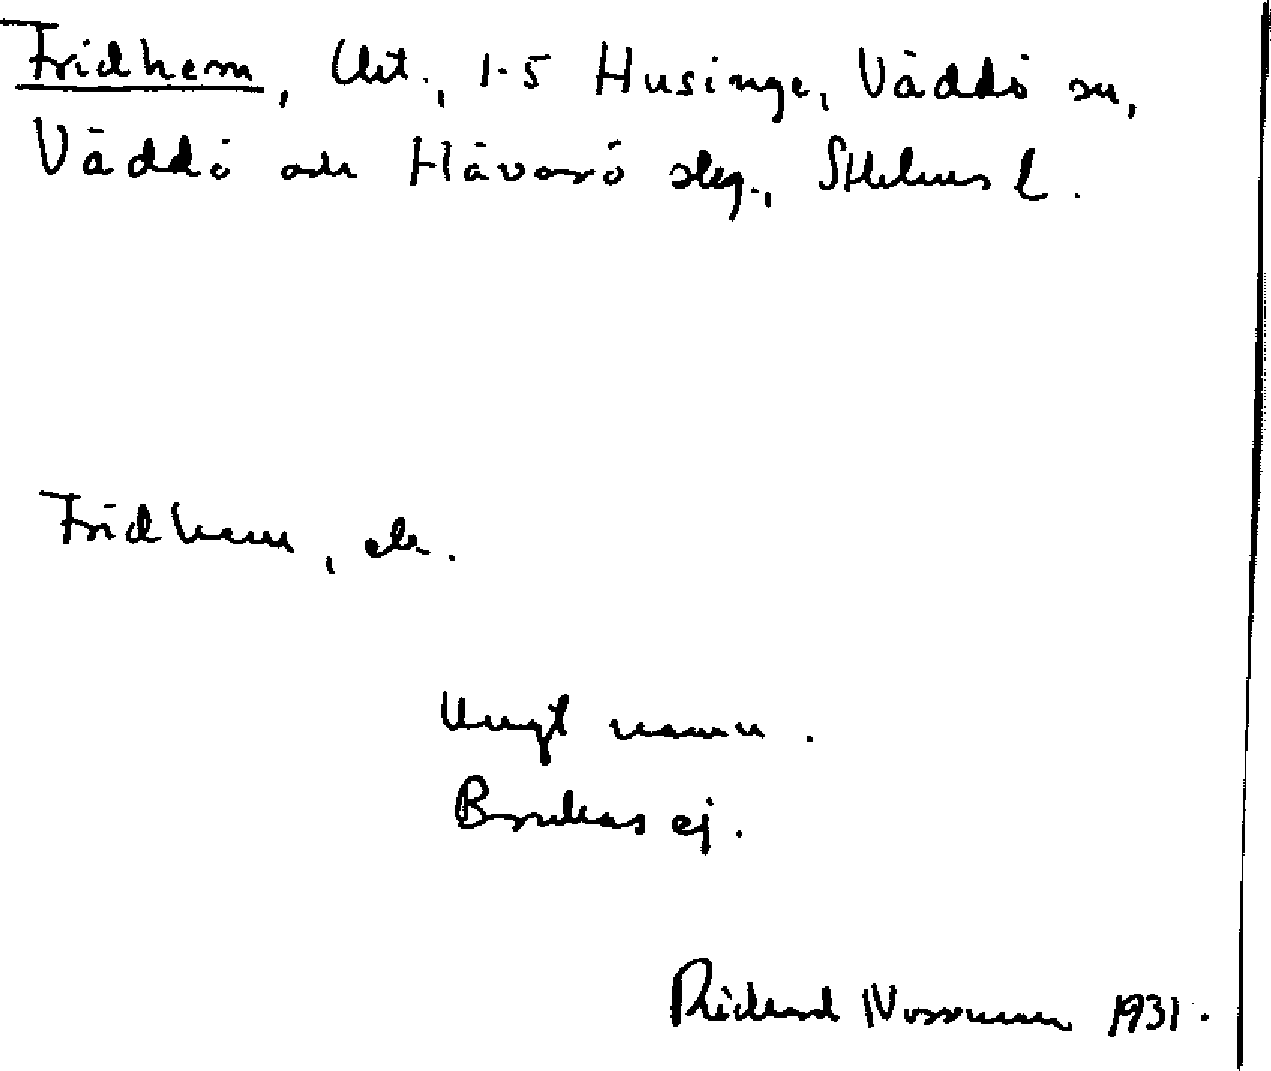 Fridhem, Utt., 1-5 Husinge, Väddö sn,
Väddö och Häverö skg., Sthlms l.
Fridhem,
Ungt namn.
Brukas ej.
Richard Norrman 1931.